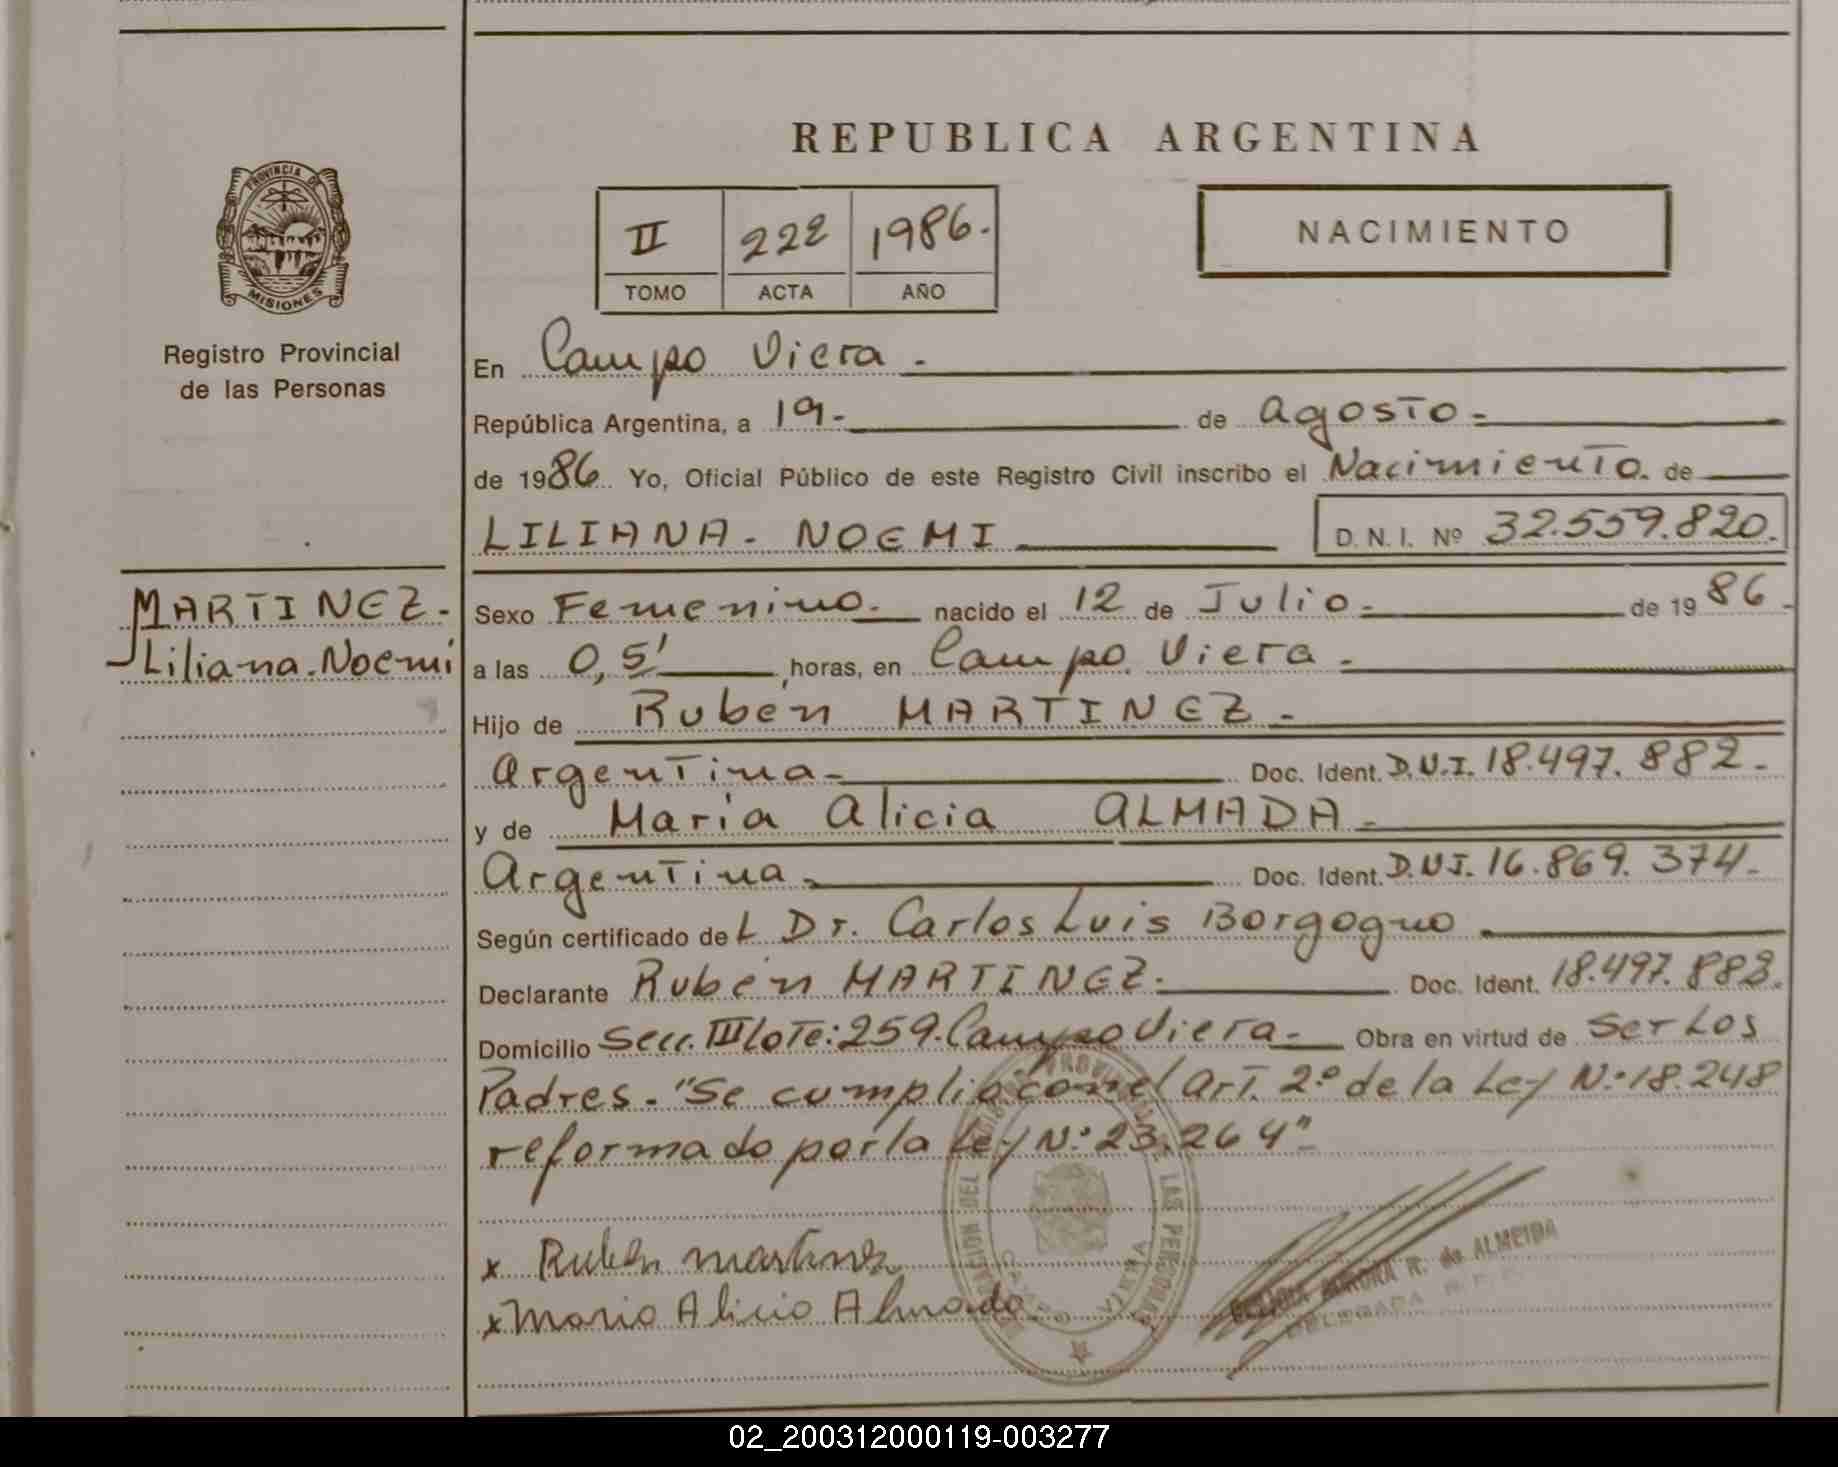 REPUBLICA ARGENTINA
PROVINCIA DE
MISIONES
Registro Provincial
de las Personas
II 222 1986.
TOMO ACTA AÑO
NACIMIENTO
En Campo Viera.
República Argentina, a 19. de agosto.
de 1986. Yo, Oficial Público de este Registro Civil inscribo el Nacimiento. de
LILIANA. NOEMI D. N. I. Nº 32.559.820.
MARTINEZ.
Liliana. Noemi
Sexo Femenino. nacido el 12 de Julio. de 1986.
a las 0,5' horas, en Campo Viera.
Hijo de Rubén MARTINEZ.
Argentina. Doc. Ident. D.N.I. 18.497.882.
y de María Alicia ALMADA.
Argentina. Doc. Ident. D.N.I. 16.869.374.
Según certificado del Dr. Carlos Luis Borgogno
Declarante Rubén MARTINEZ. Doc. Ident. 18.497.882.
Domicilio Secc. III Lote: 259. Campo Viera. Obra en virtud de ser Los
Padres. "Se cumplio con el Art. 2º de la Ley N.º 18.248
reformado por la Ley N.º 23.264"
x Rubén martinez
x Maria Alicia Almada
DEL LAS PERSONAS
VIERA
AURORA R. de ALMEIDA
DELEGADA
02_200312000119-003277